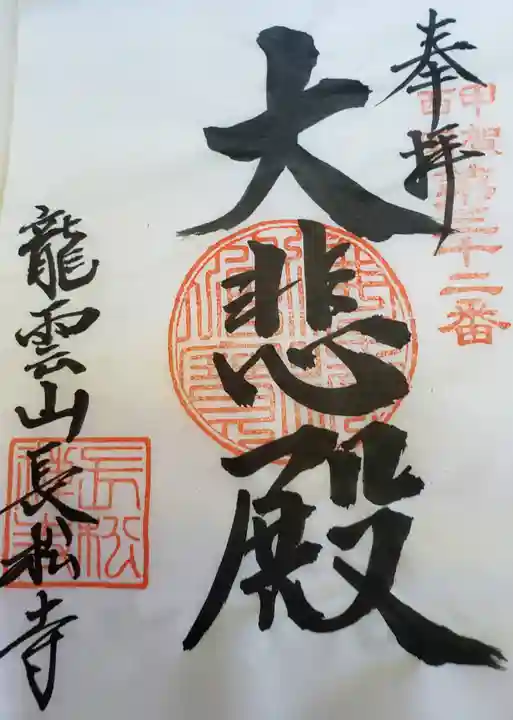 奉拝
甲賀西国第三十二番
大悲殿
龍雲山長松寺